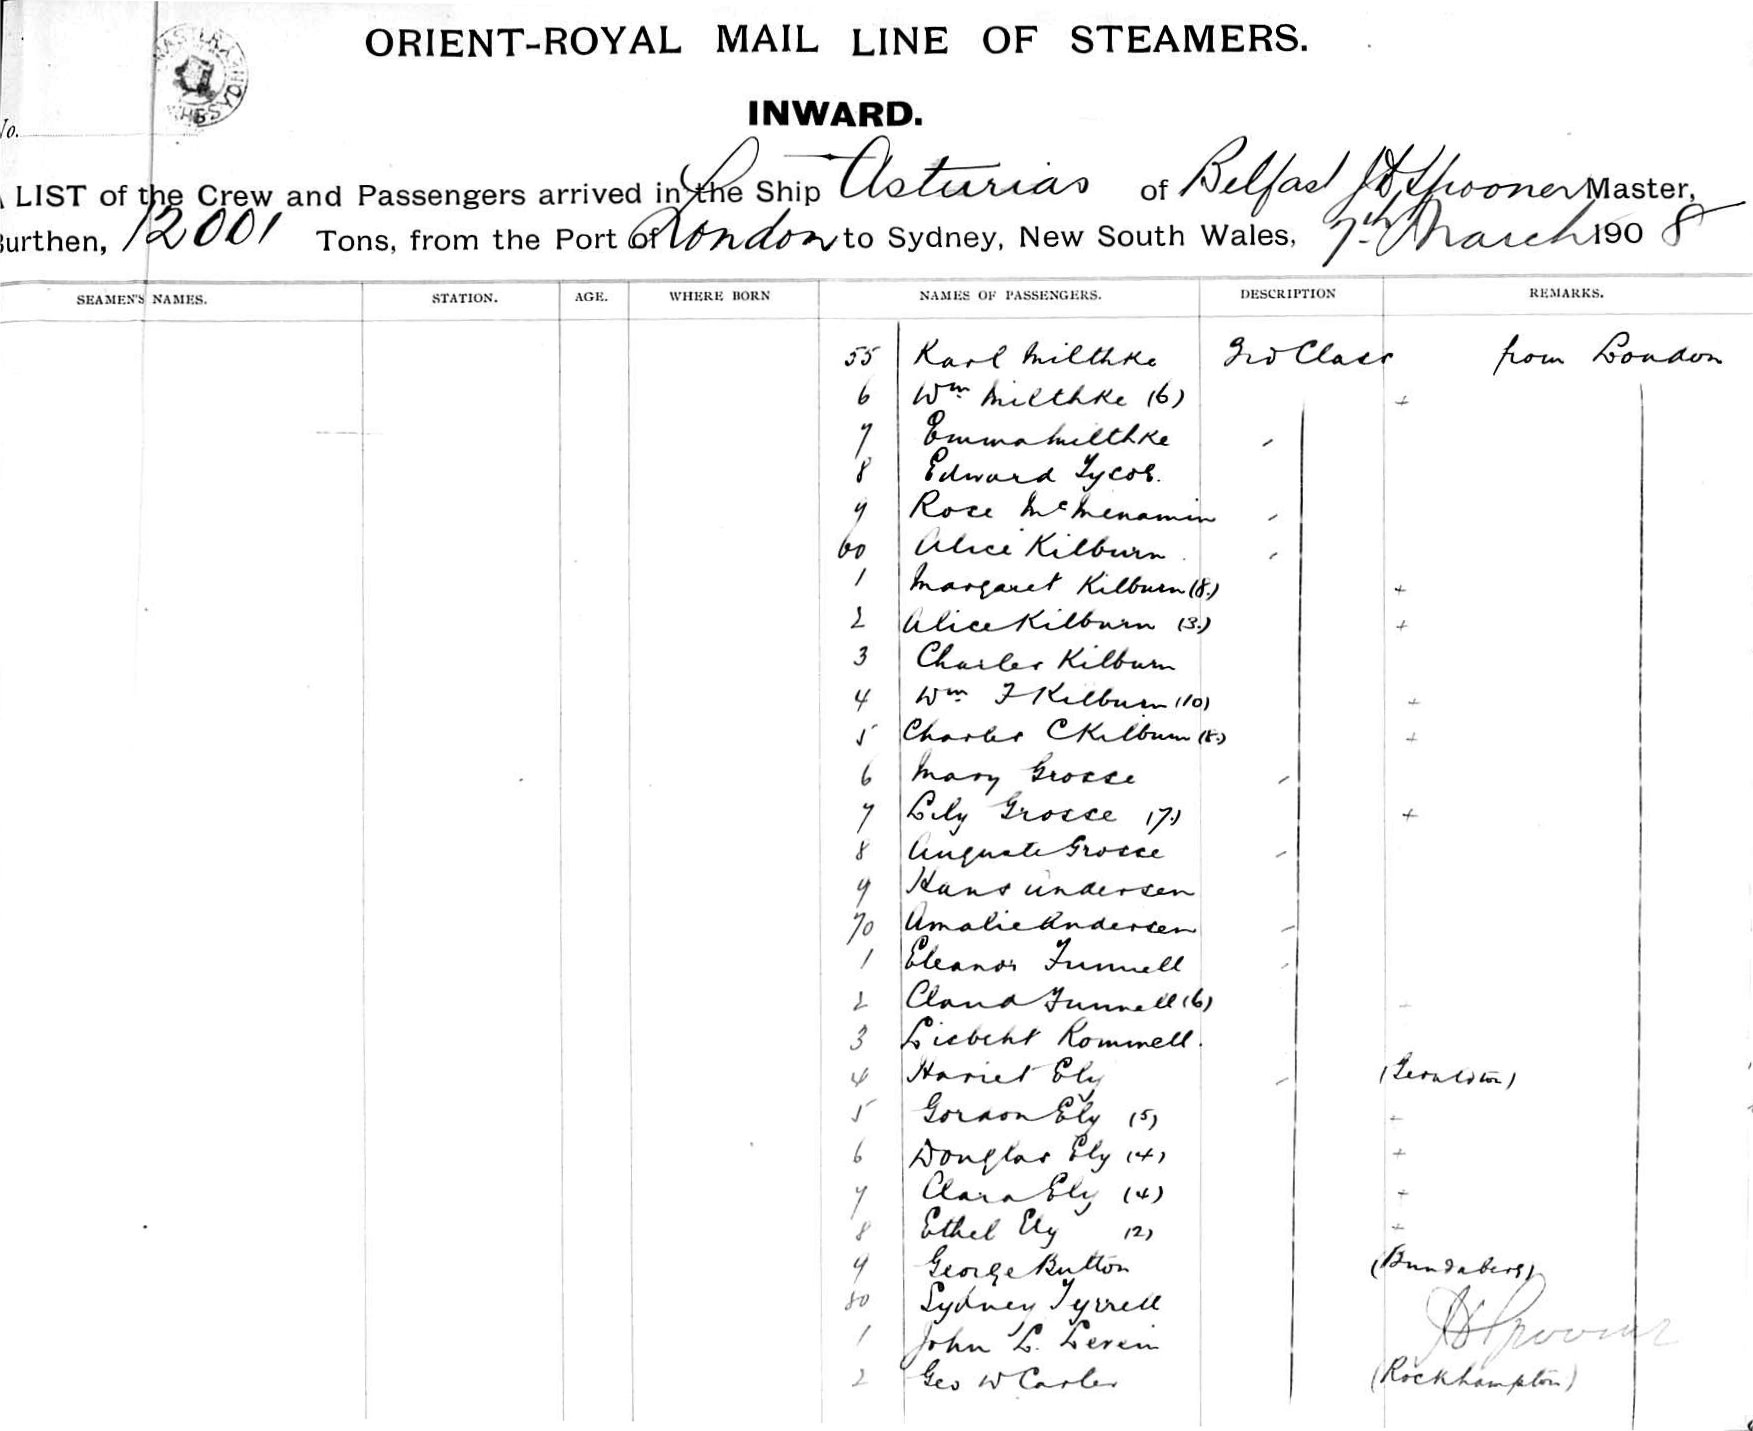 ORIENT-ROYAL MAIL LINE OF STEAMERS.
INWARD.
No.
LIST of the Crew and Passengers arrived in the Ship Asturias of Belfast J D Spooner Master,
Burthen, 12001 Tons, from the Port of London to Sydney, New South Wales, 7th March 1908
SEAMEN'S NAMES. STATION. AGE. WHERE BORN NAMES OF PASSENGERS. DESCRIPTION REMARKS.
55 Karl Milthke 3rd Class from London
6 Wm Milthke (6) +
7 Emma Milthke
8 Edward
9 Rose McMenamin
60 Alice Kilburn
1 Margaret Kilburn (8) +
2 Alice Kilburn (3) +
3 Charles Kilburn
4 Wm F Kilburn (10) +
5 Charles C Kilburn (8) +
6 Mary Grosse
7 Lily Grosse (7) +
8 Auguste Grosse
9 Hans Andersen
70 Amalie Andersen
1 Eleanor Funnell
2 Claud Funnell (6)
3 Lisbeht Rommell.
4 Hariet Ely (Geraldton)
5 Gordon Ely (5)
6 Douglas Ely (4) +
7 Clara Ely (4) +
8 Ethel Ely (2) +
9 George Button (Bundaberg)
80 Sydney Tyrrell
J D Spooner
1 John L. Levein
2 Geo W Carter (Rockhampton)